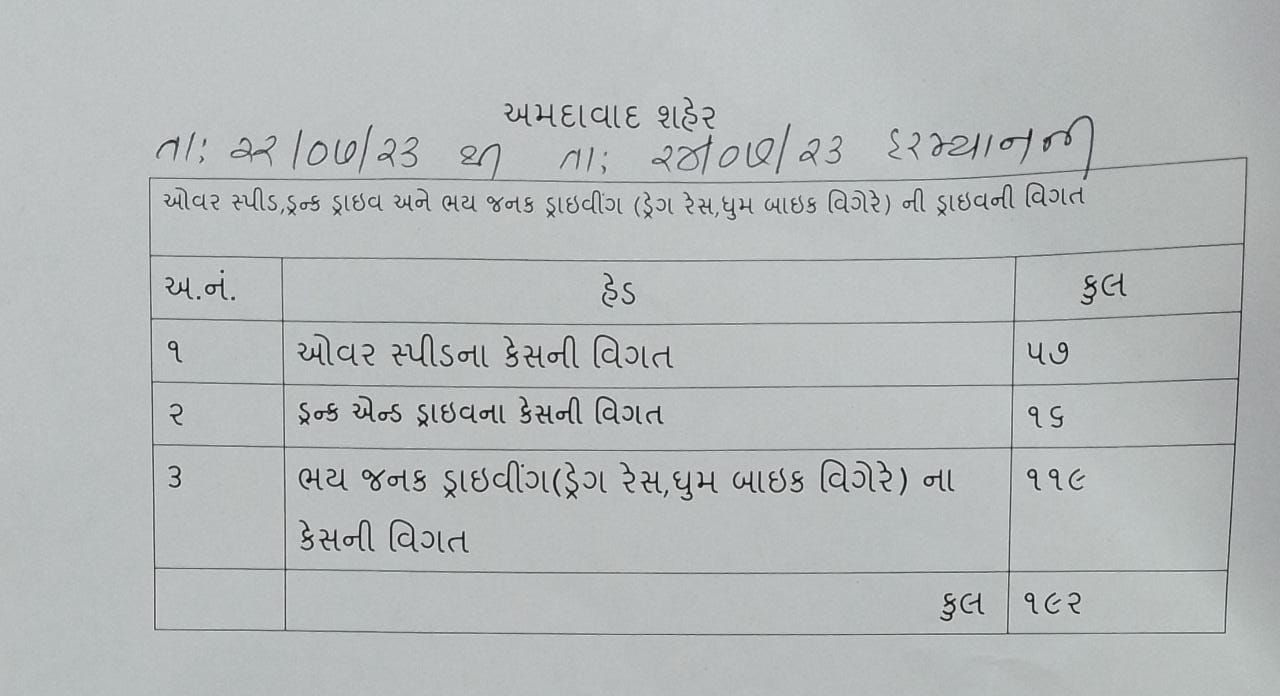 અમદાવાદ શહેર
તા: ૨૨/૦૭/૨૩ થી તા: ૨૪/૦૭/૨૩ દરમ્યાનની
ઓવર સ્પીડ,ડ્રન્ક ડ્રાઇવ અને ભય જનક ડ્રાઇવીંગ (ડ્રેગ રેસ,ધુમ બાઇક વિગેરે) ની ડ્રાઇવની વિગત
અ.નં. હેડ કુલ
૧ ઓવર સ્પીડના કેસની વિગત ૫૭
૨ ડ્રન્ક એન્ડ ડ્રાઇવના કેસની વિગત ૧૬
૩ ભય જનક ડ્રાઇવીંગ(ડ્રેગ રેસ,ધુમ બાઇક વિગેરે) ના ૧૧૯
કેસની વિગત
કુલ ૧૯૨